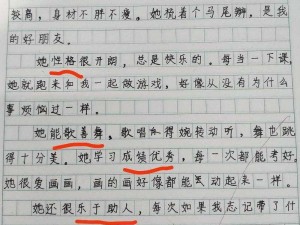 较高，身材不胖不瘦。她梳着个马尾辫，是我
的好朋友。
她性格很开朗，总是快乐的。每当一下课，
她就跑来和我一起做游戏，好像从没有为什么
事烦恼过一样。
她能歌善舞。歌唱得婉转动听，舞也跳
得十分美。她学习成绩优秀，每一次都能考好。
她很爱画画，画的画好像都能灵动起来一样。
她还很乐于助人，每次如果我忘记带了什